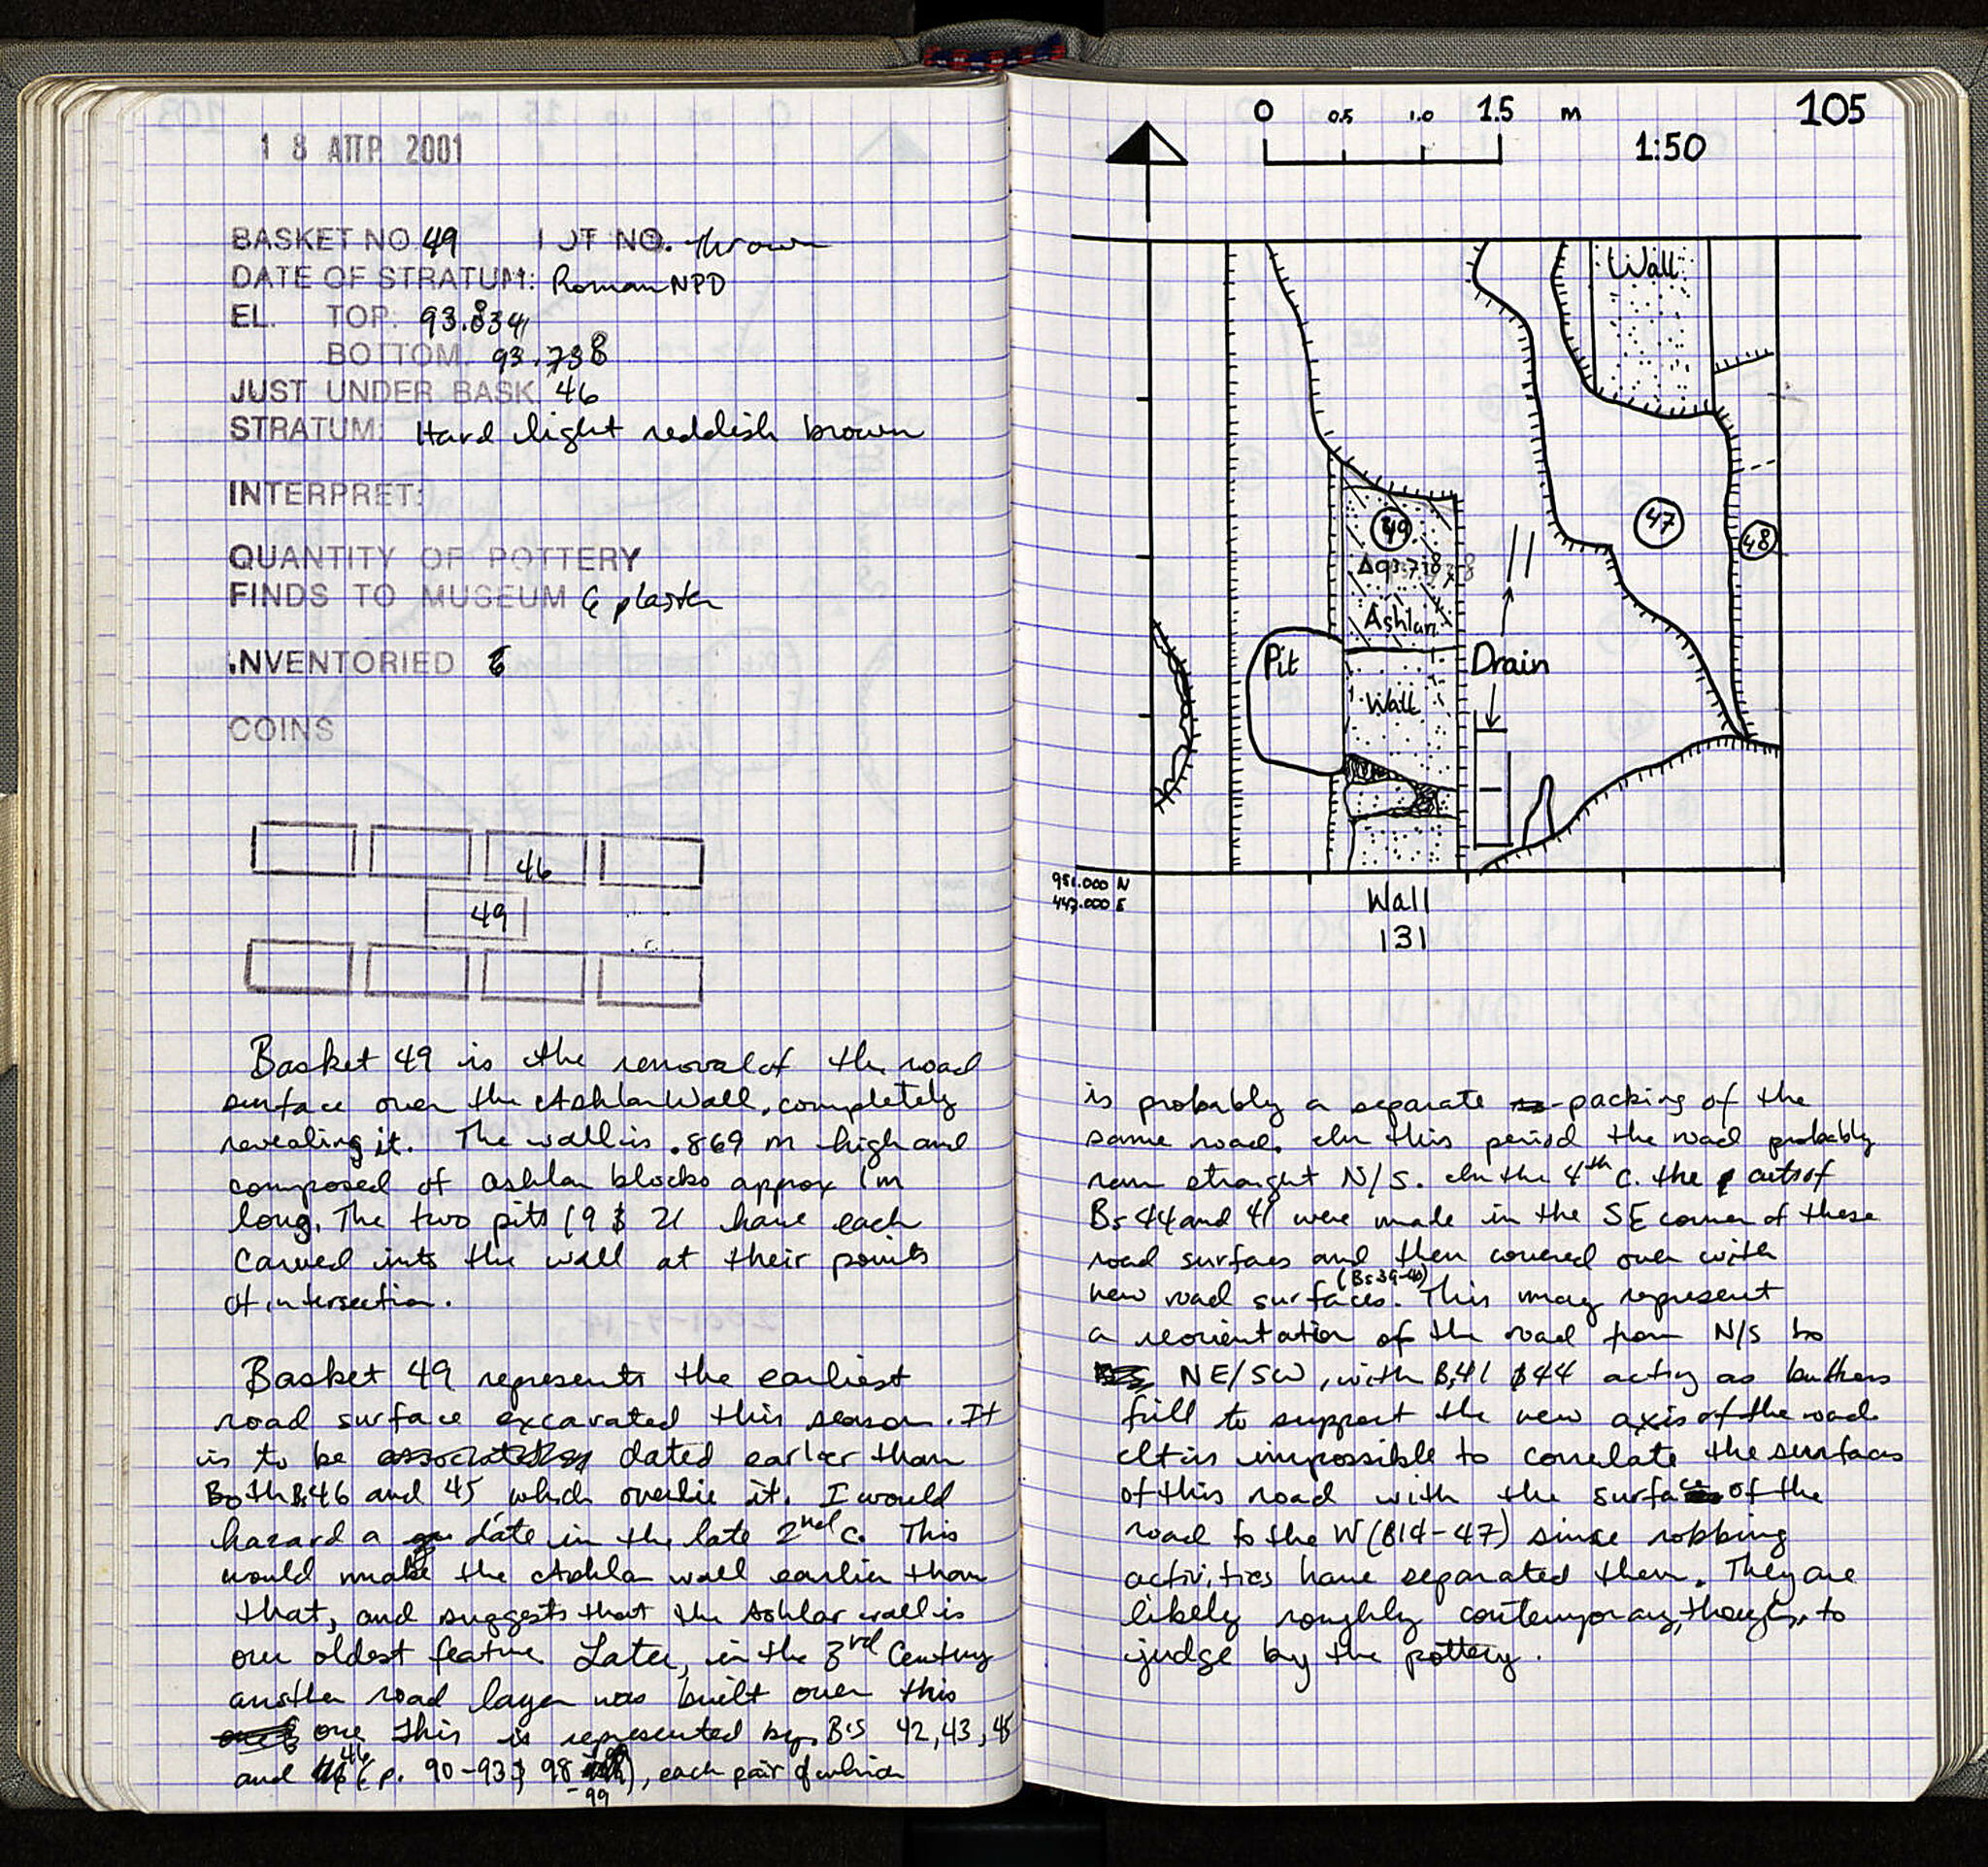 1 8 ΑΠΡ. 2001
BASKET NO. 49 LOT NO. thrown
DATE OF STRATUM: Roman NPD
EL. TOP: 93.834
BOTTOM: 93.738
JUST UNDER BASK. 46
STRATUM: Hard light reddish brown
INTERPRET:
QUANTITY OF POTTERY
FINDS TO MUSEUM plaster
INVENTORIED
COINS
46
49
Basket 49 is the removal of the road
surface over the Ashlar Wall, completely
revealing it. The wall is .869 m high and
composed of ashlar blocks approx 1m
long. The two pits 19 & 21 have each
carved into the wall at their points
of intersection.
Basket 49 represents the earliest
road surface excavated this season. It
is to be dated earlier than
Both B.46 and 45 which overlie it. I would
hazard a date in the late 2nd c. This
would make the Ashlar wall earlier than
that, and suggests that the Ashlar wall is
our oldest feature. Later, in the 3rd Century
another road layer was built over this
one this is represented by B's 42, 43, 45
and 46 (p. 90-93 & 98-99), each pair of which
105
0 0.5 1.0 1.5 m
1:50
Wall
49
47
48
Δ93.738
Ashlar
Pit
Drain
Wall
951.000 N
447.000 E
Wall
131
is probably a separate packing of the
same road. In this period the road probably
ran straight N/S. In the 4th c. the cuts of
Bs 44 and 41 were made in the SE corner of these
road surfaces and then covered over with
new road surfaces. (Bs 39-40) This may represent
a reorientation of the road from N/S to
NE/SW, with B.41 & 44 acting as buttress
fill to support the new axis of the road.
It is impossible to correlate the surfaces
of this road with the surfaces of the
road to the W (B14-47) since robbing
activities have separated them. They are
likely roughly contemporary, though, to
judge by the pottery.